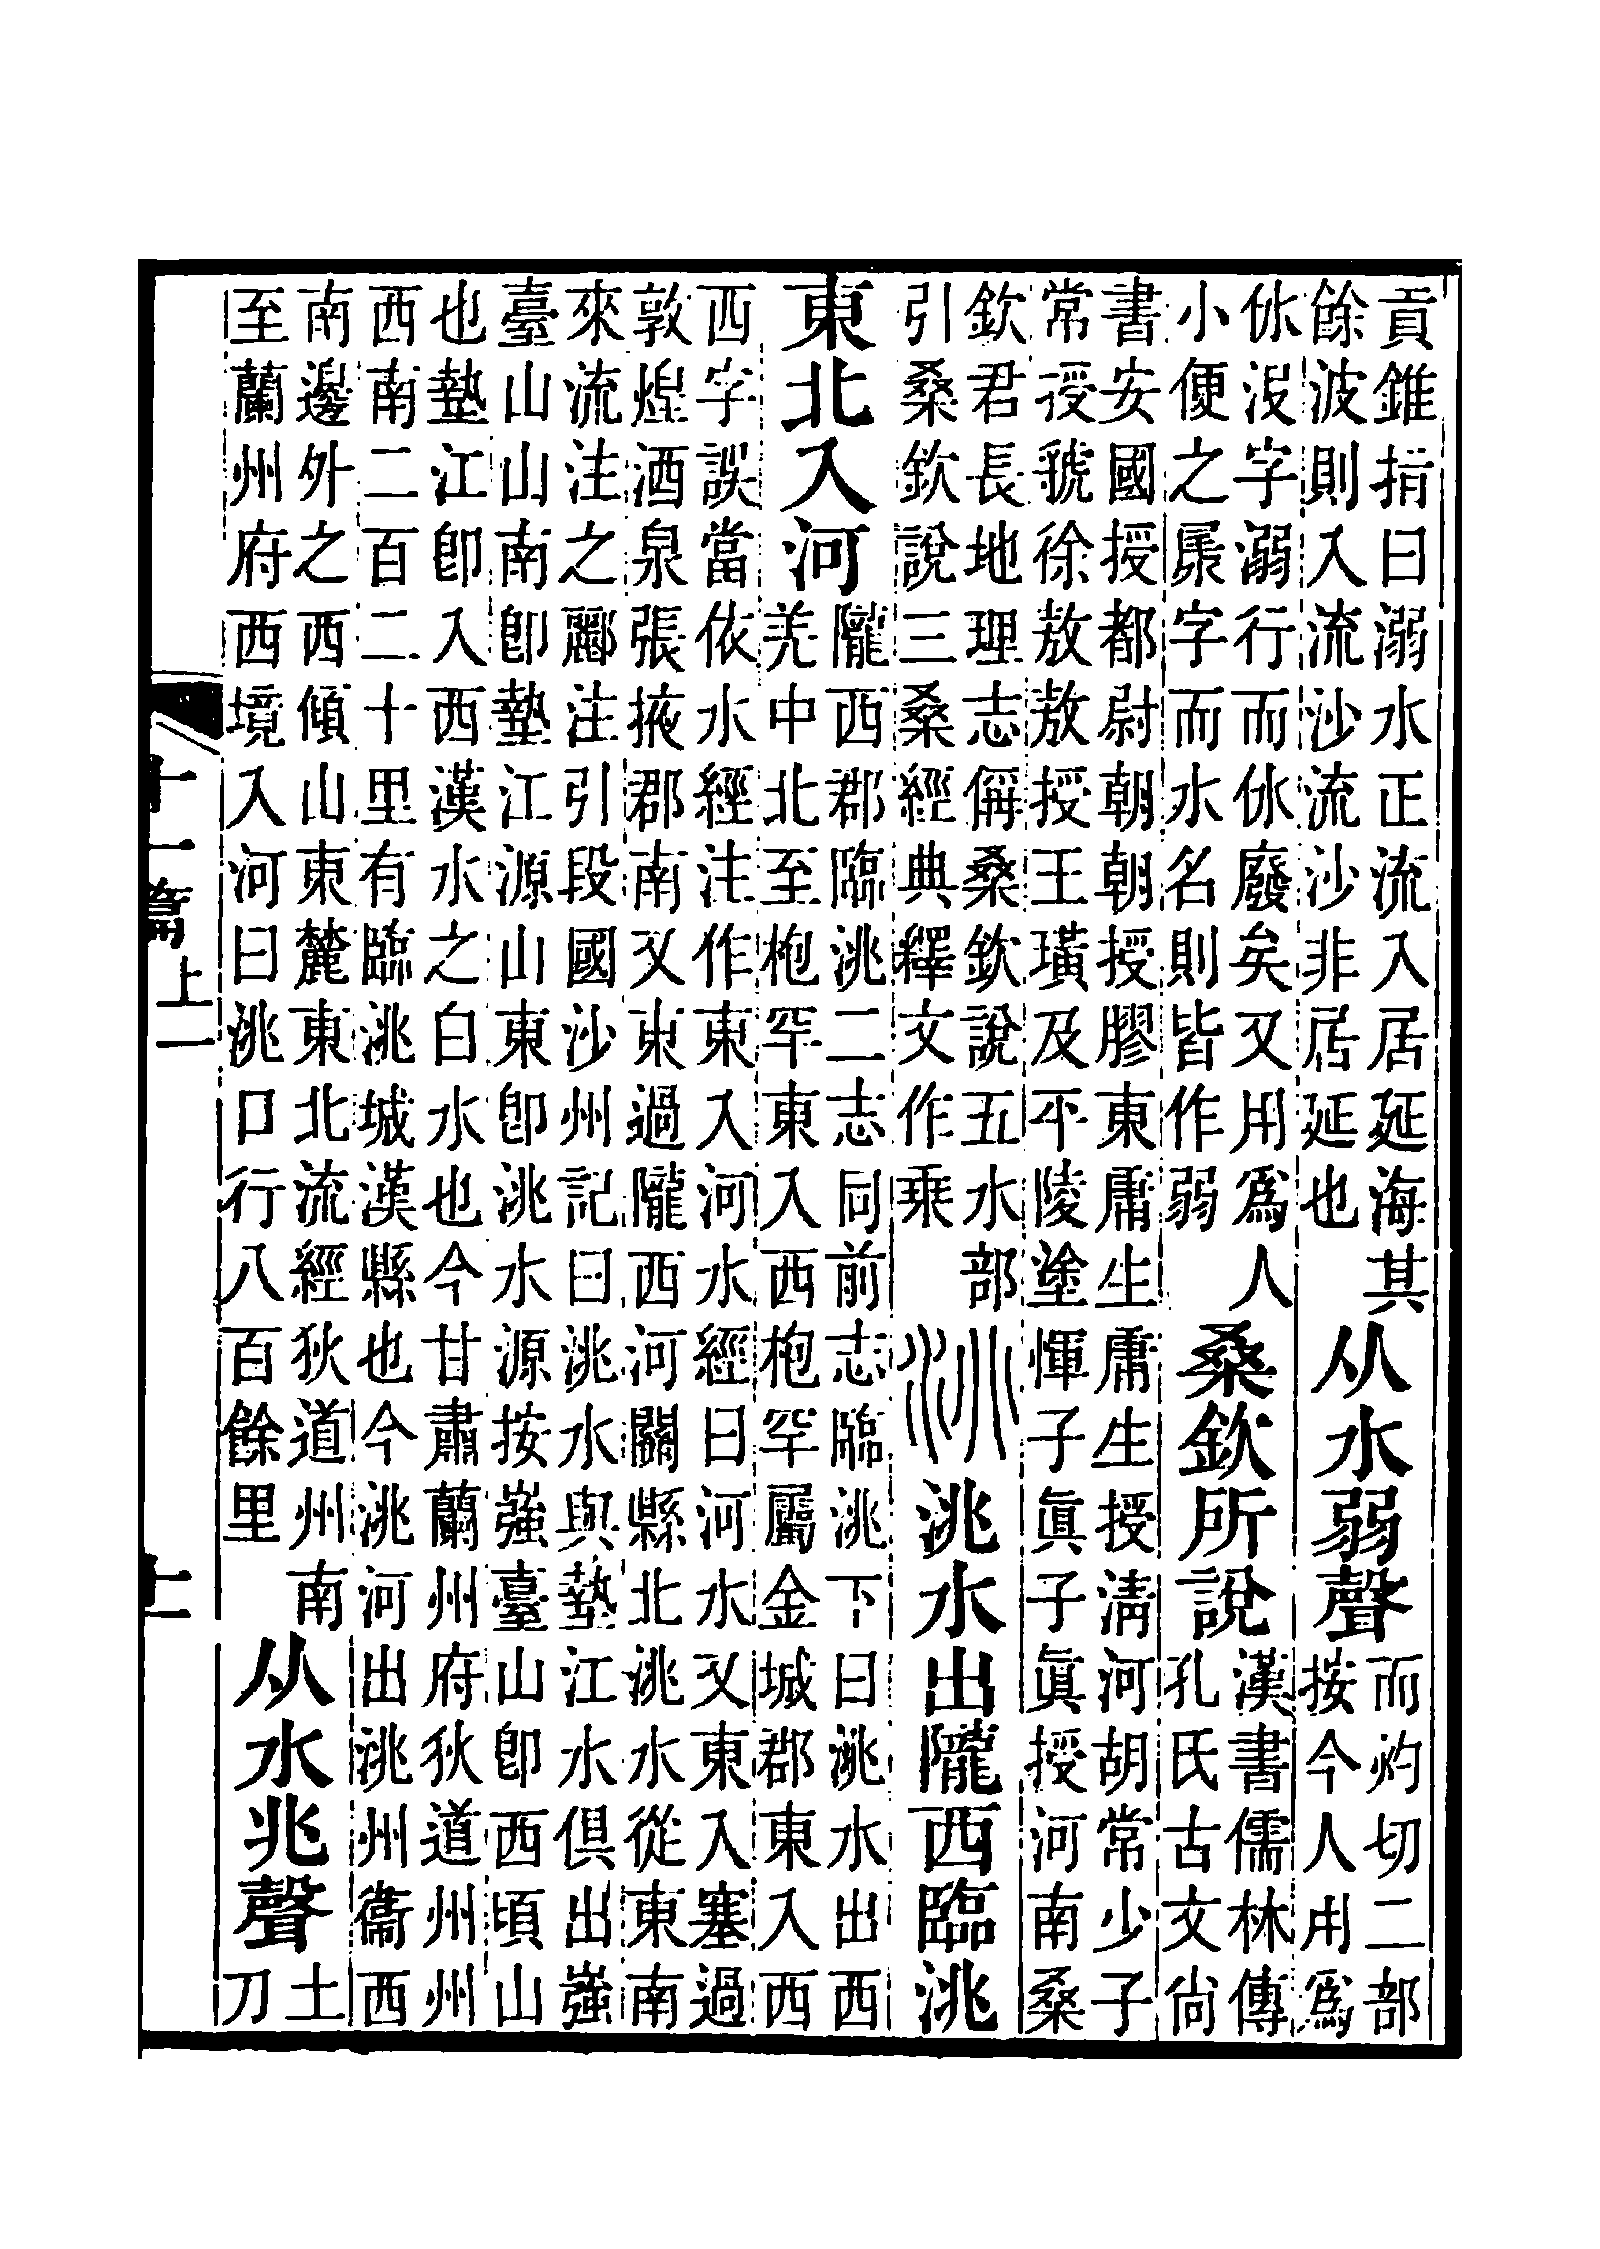 貢錐指曰溺水正流入居延海其
餘波則入流沙流沙非居延也
从水弱聲
而灼切二部
按今人用爲
㲻沒字溺行而㲻廢矣又用爲人
小便之㞙字而水名則皆作弱
桑欽所說
漢書儒林傳
孔氏古文尚
書安國授都尉朝朝授膠東庸生庸生授淸河胡常少子
常授虢徐敖敖授王璜及平陵塗惲子眞子眞授河南桑
欽君長地理志偁桑欽說五水部
引桑欽說三桑經典釋文作乗
洮水出隴西臨洮
東北入河
隴西郡臨洮二志同前志臨洮下曰洮水出西
羌中北至枹罕東入西枹罕屬金城郡東入西
西字誤當依水經注作東入河水經曰河水又東入塞過
敦煌酒泉張掖郡南又東過隴西河關縣北洮水從東南
來流注之酈注引段國沙州記曰洮水與墊江水俱出嵹
臺山山南卽墊江源山東卽洮水源按嵹臺山卽西頃山
也墊江卽入西漢水之白水也今甘肅蘭州府狄道州州
西南二百二十里有臨洮城漢縣也今洮河出洮州衞西
南邊外之西傾山東麓東北流經狄道州南
至蘭州府西境入河曰洮口行八百餘里
从水兆聲
土
刀
十一篇上一
十一